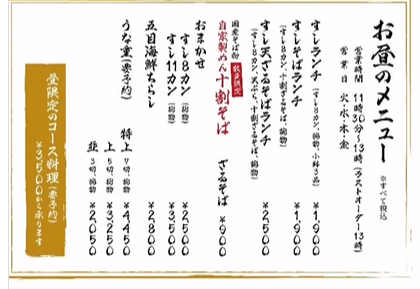 お昼のメニュー
※すべて税込
営業時間 11時30分〜13時(ラストオーダー13時)
営業日 火・水・木・金
すしランチ ¥1,900
(すし8カン、椀物、小鉢3品)
すしそばランチ ¥1,900
(すし8カン、十割ざるそば、椀物)
すし天ざるそばランチ ¥2,500
(すし8カン、天ぷら、十割ざるそば、椀物)
国産そば粉 数量限定
自家製めん十割そば ざるそば ¥900
おまかせ
すし8カン(椀物) ¥2,500
すし11カン(椀物) ¥3,500
五目海鮮ちらし ¥2,800
うな重(要予約)
特上 7切、椀物 ¥4,450
上 5切、椀物 ¥3,250
並 3切、椀物 ¥2,050
昼限定のコース料理(要予約)
¥3,500から承ります